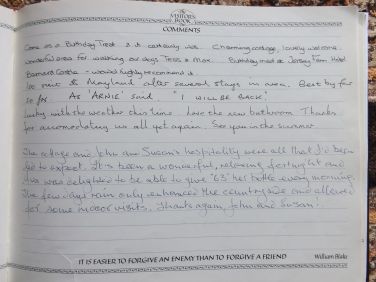 THE
VISITOR'S
BOOK
COMMENTS
Came as a Birthday Treat & it certainly was. Charming cottage, lovely welcome.
Wonderful area for walking our dogs Tess & Max. Birthday meal at Jersey Farm Hotel
Barnard Castle - would highly recommend it.
1st out & Mayland after several stays in area. Best by far
so far. As 'ARNIE' said "I WILL BE BACK!
Lucky with the weather this time. Love the new bathroom. Thanks
for accommodating us all yet again. See you in the summer
The cottage and John and Susan's hospitality were all that I'd been
led to expect. It's been a wonderful, relaxing fortnight and
was delighted to be able to give '63' her bottle every morning.
The few days rain only enhanced the countryside and allowed
for some indoor visits. Thanks again, John and Susan!
IT IS EASIER TO FORGIVE AN ENEMY THAN TO FORGIVE A FRIEND
William Blake